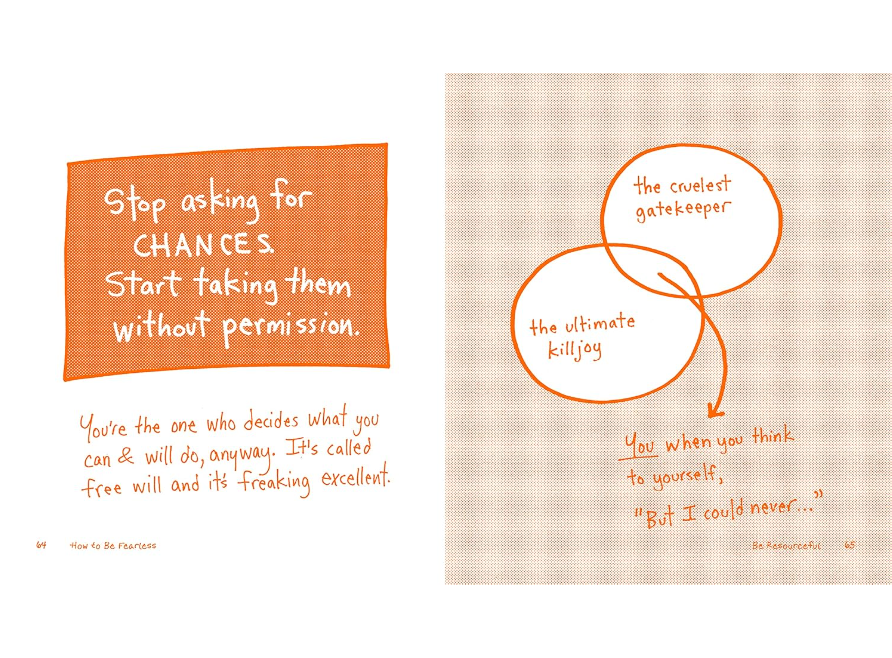 Stop asking for
CHANCES.
Start taking them
without permission.
You're the one who decides what you
can & will do, anyway. It's called
free will and it's freaking excellent.
64 How to Be Fearless
the cruelest
gatekeeper
the ultimate
killjoy
You when you think
to yourself,
"But I could never..."
Be Resourceful 65